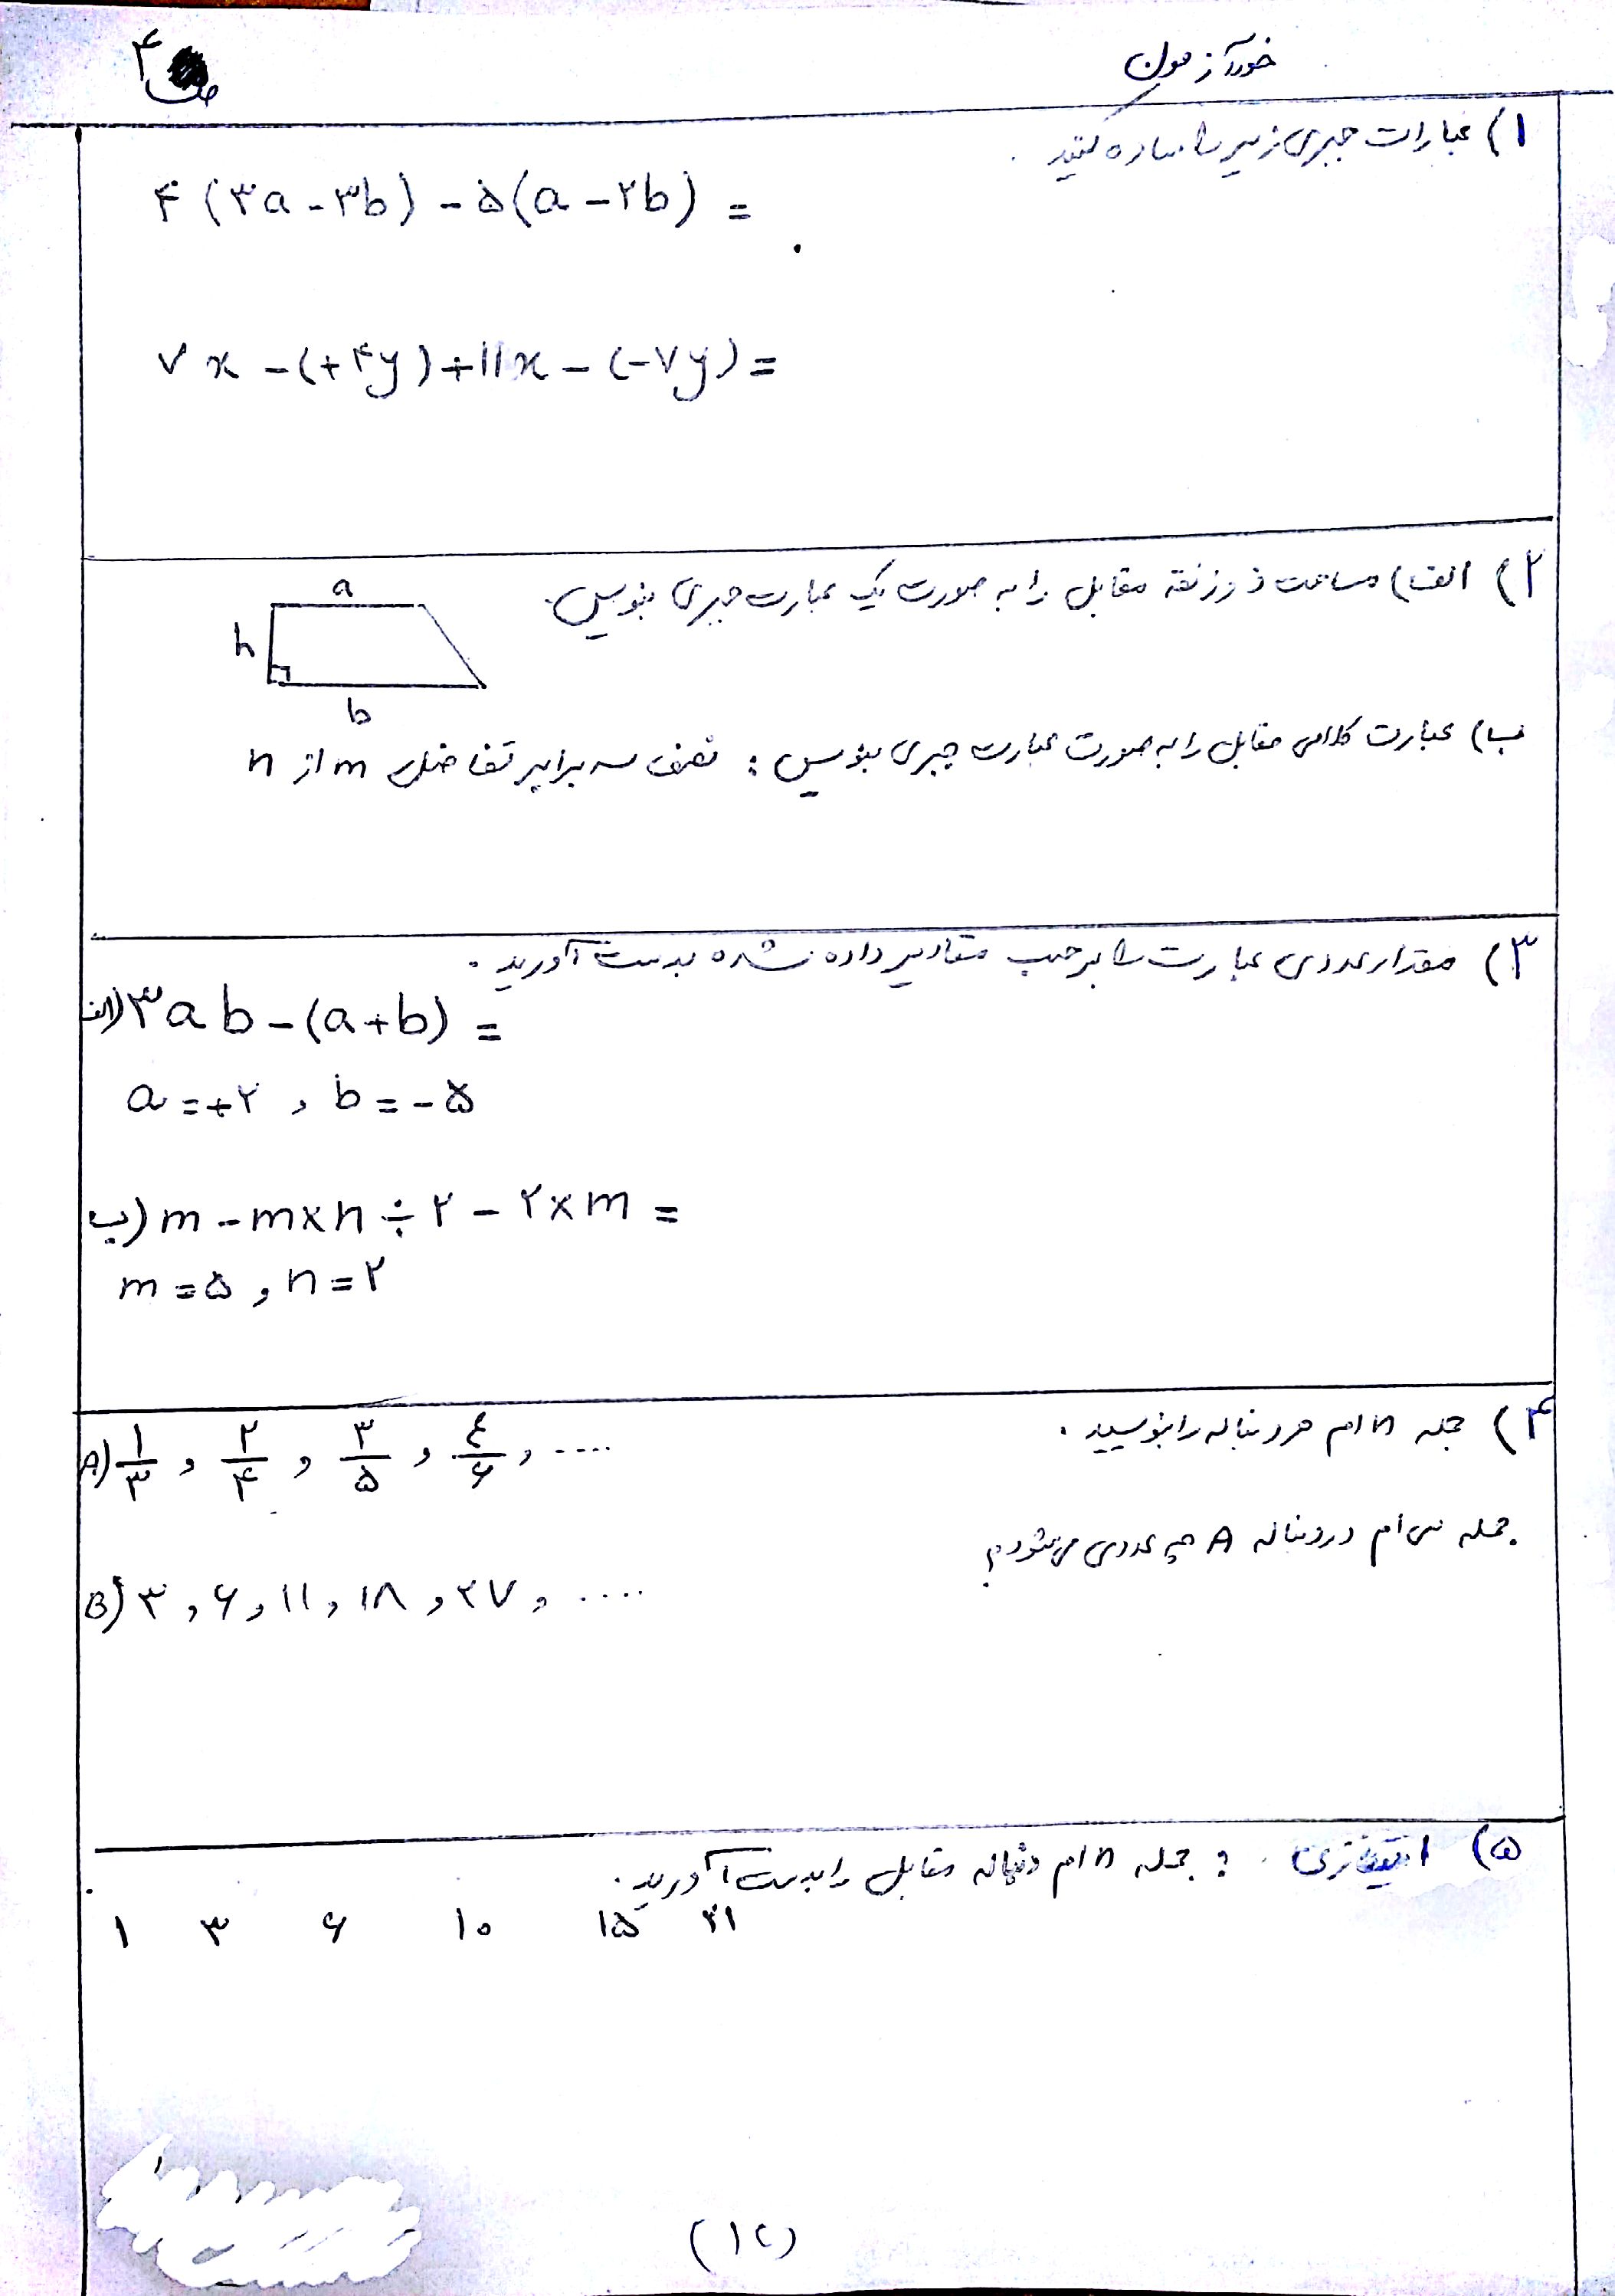 خودآزمون
۴
۱) عبارات جبری زیر را ساده کنید.
۴(۳a-۳b)-۵(a-۲b)=
۷x-(+۴y)+۱۱x-(-۷y)=
۲) الف) مساحت ذوزنقه مقابل را به صورت یک عبارت جبری بنویس.
a
h
b
ب) عبارت کلامی مقابل را به صورت عبارت جبری بنویس: نصف سه برابر تفاضل m از n
۳) مقدار عددی عبارت را برحسب مقادیر داده شده بدست آورید.
الف) ۳ab-(a+b)=
a=+۲ , b=-۵
ب) m-m×n÷۲-۲×m=
m=۵ , n=۲
۴) جمله nام هر دنباله را بنویسید.
A) ۱/۳ , ۲/۴ , ۳/۵ , ٤/۶ , ....
جمله سی ام در دنباله A چه عددی می‌شود؟
B) ۳ , ۶ , ۱۱ , ۱۸ , ۲۷ , ....
۵) : جمله nام دنباله مقابل را بدست آورید.
۱ ۳ ۶ ۱۰ ۱۵ ۲۱
(۱۲)